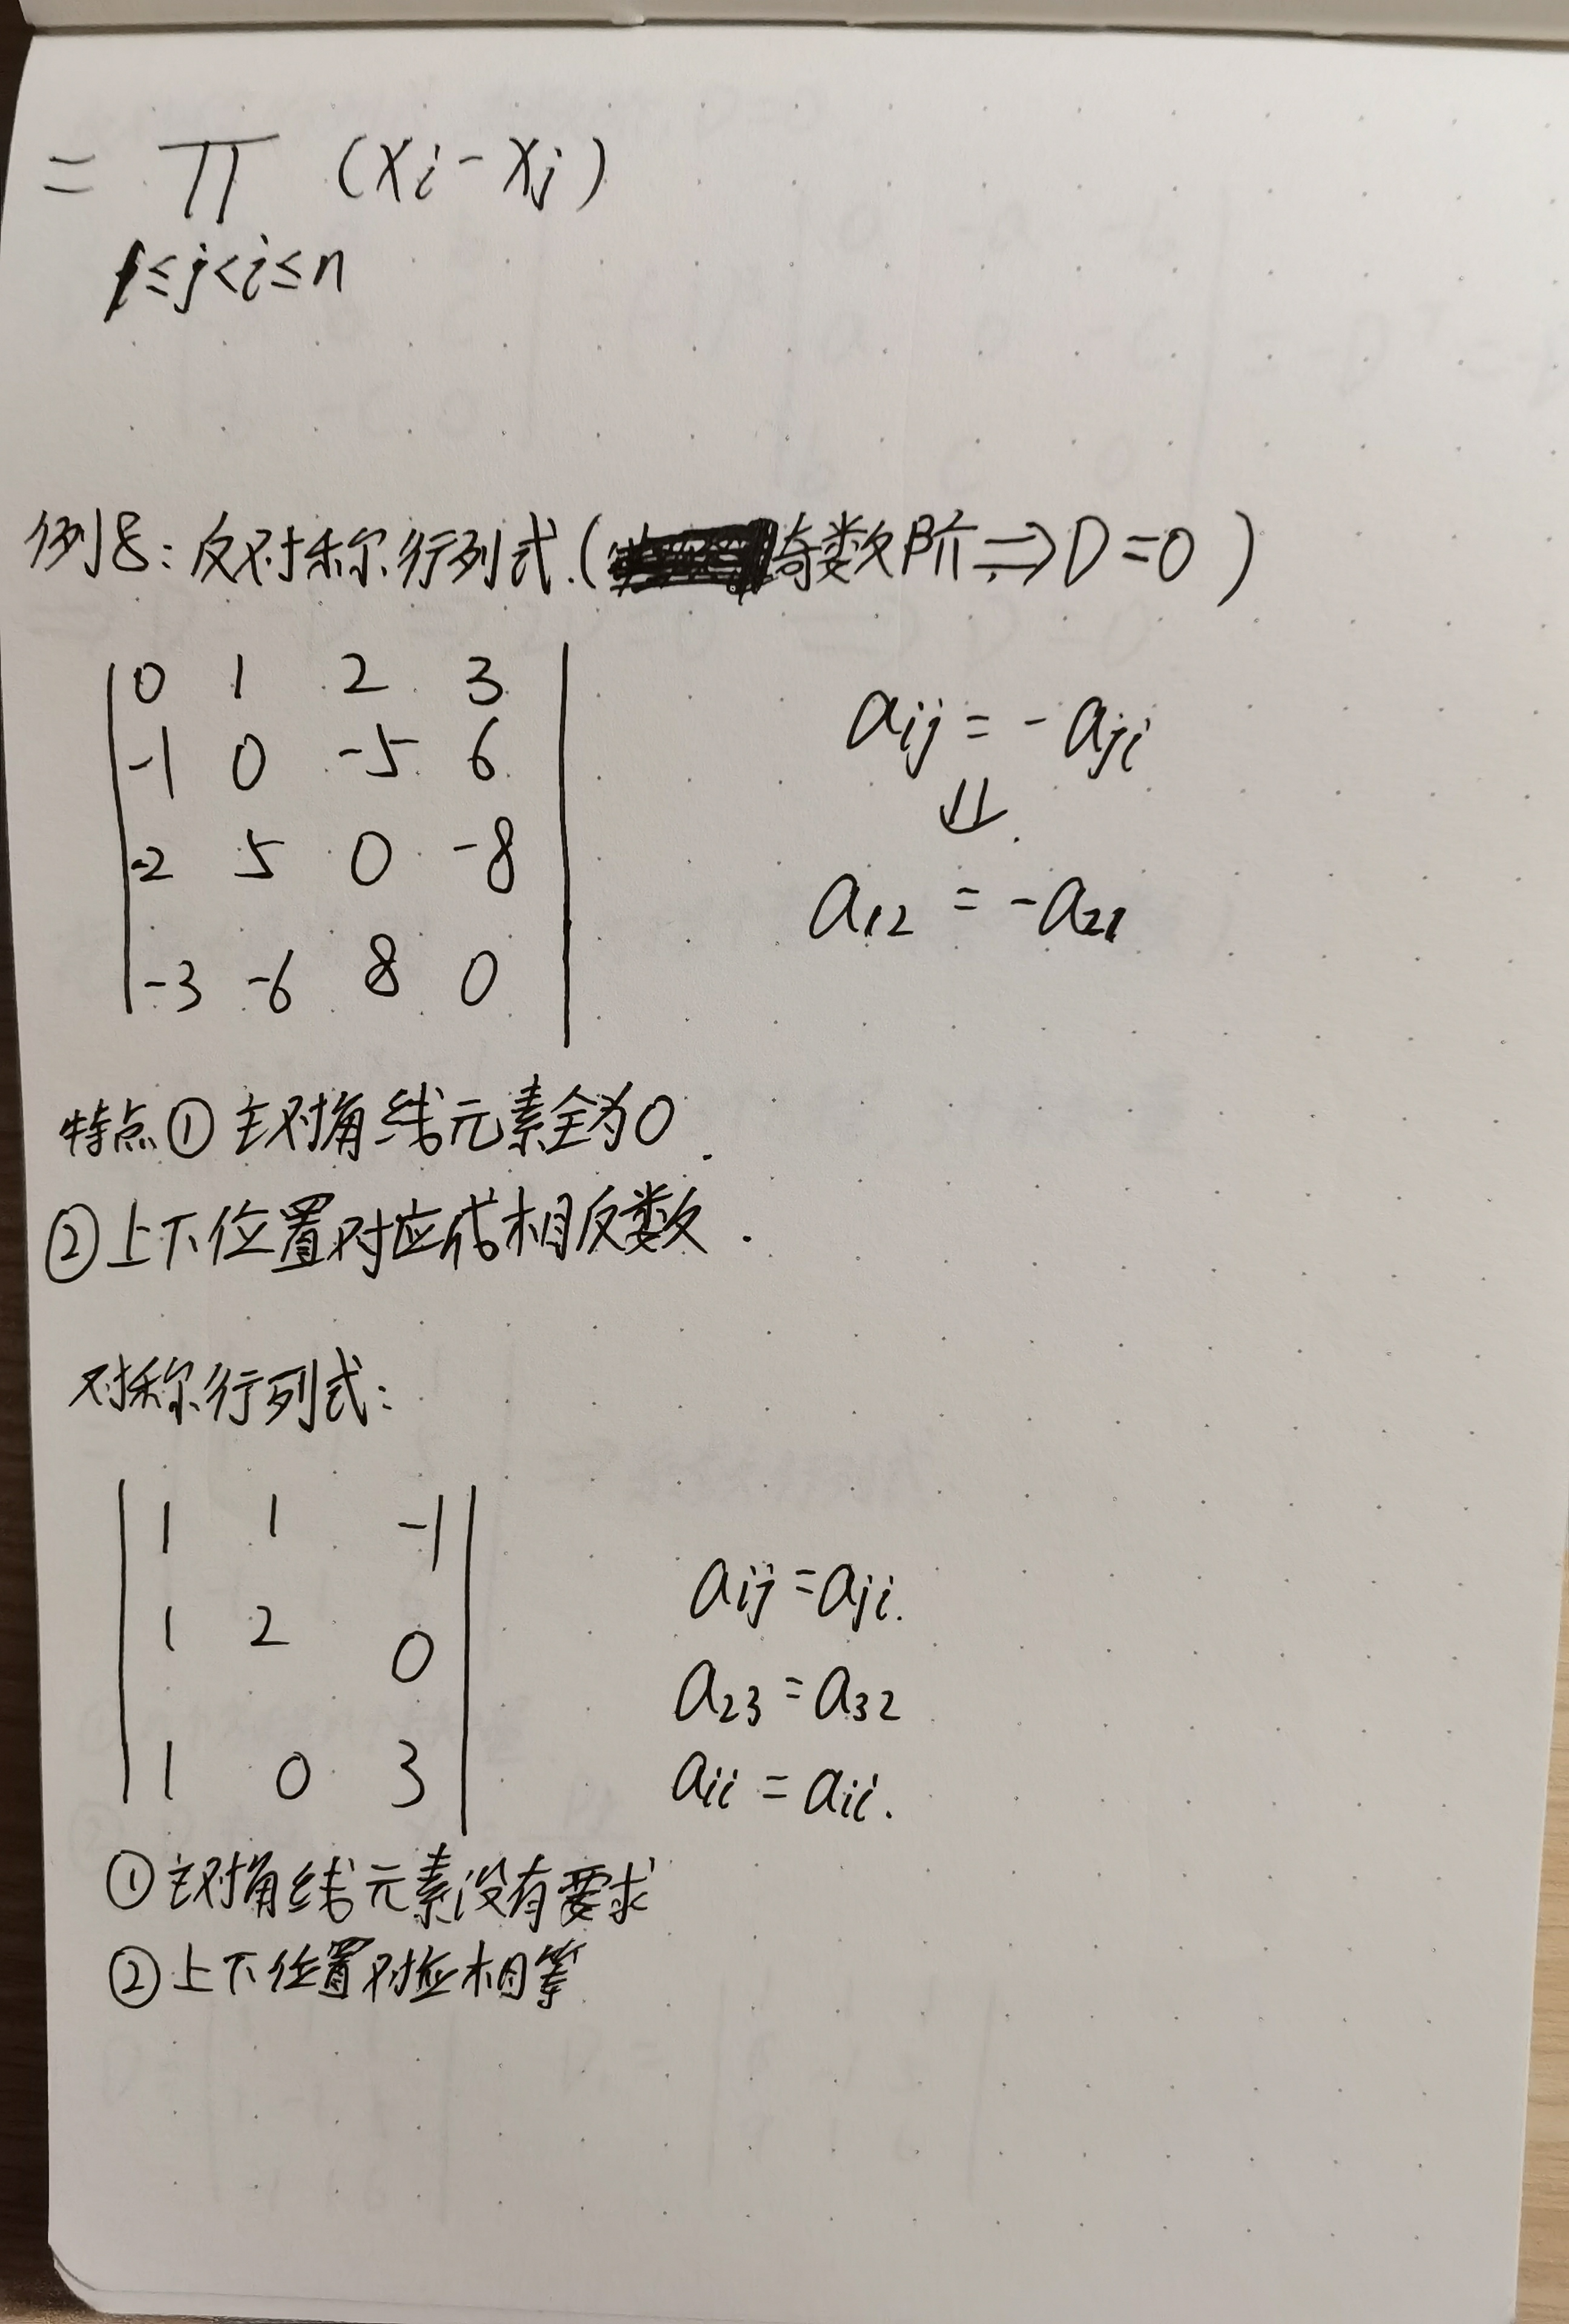 = ∏ (xi - xj)
1≤j<i≤n
例8: 反对称行列式.( 奇数阶⇒D=0 )
0 1 2 3
-1 0 -5 6
-2 5 0 -8
-3 -6 8 0
aij = -aji
⇓
a12 = -a21
特点① 主对角线元素全为0.
②上下位置对应成相反数.
对称行列式:
1 1 -1
1 2 0
1 0 3
aij = aji.
a23 = a32
aii = aii.
①主对角线元素没有要求
②上下位置对应相等